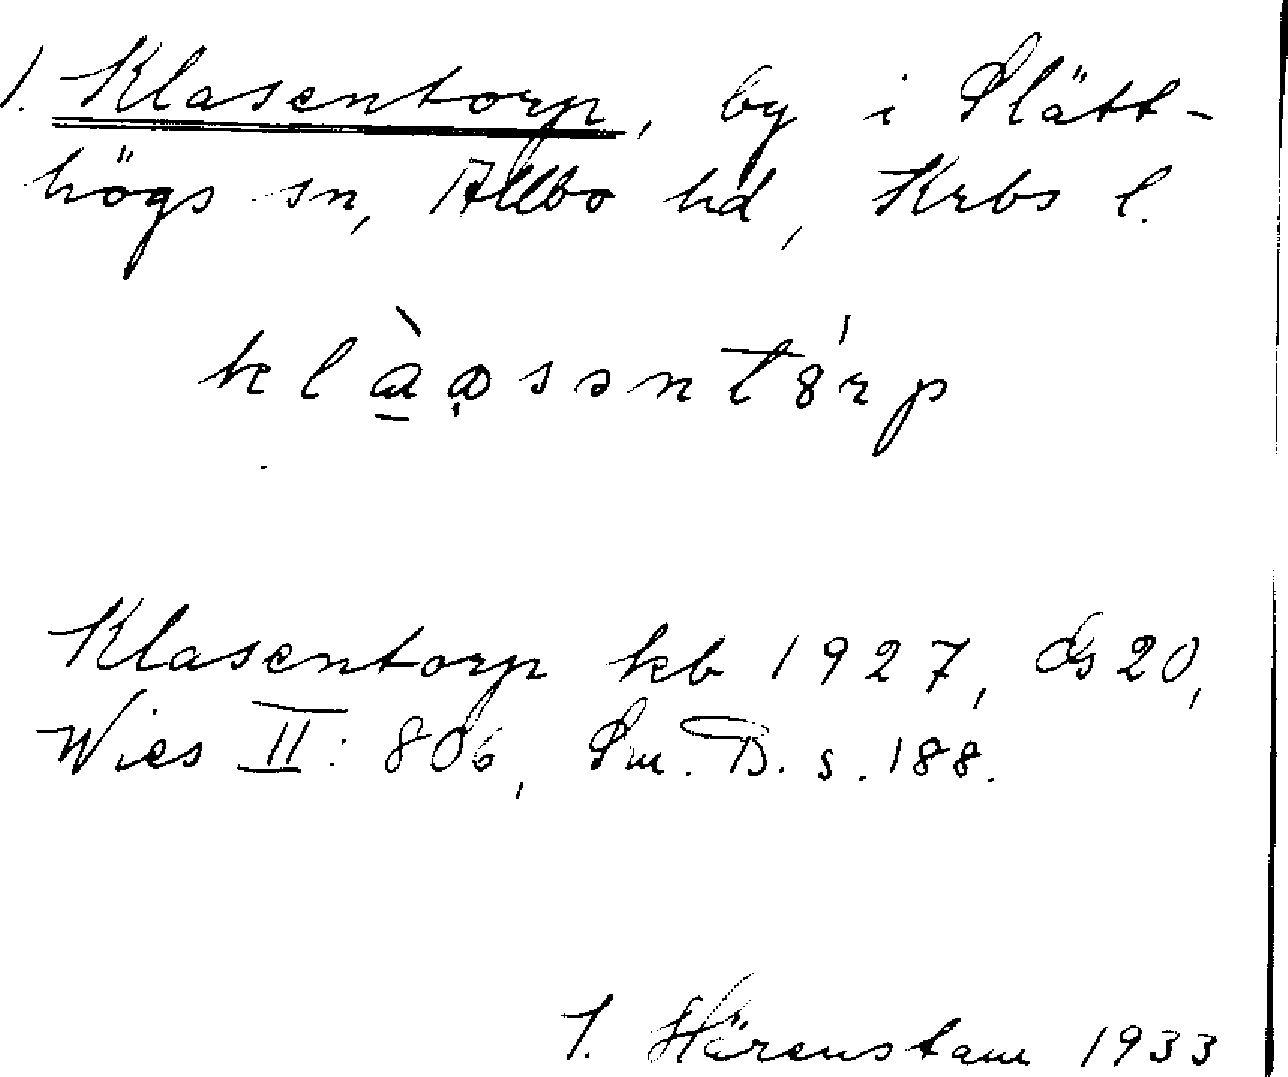 1. Klasentorp, by i Slätt-
högs sn, Allbo hd, Krbs l.
klàasɘntórp
Klasentorp kb 1927, Gs 20,
Wies II: 806, Sm. B. s. 188.
I. Härenstam 1933